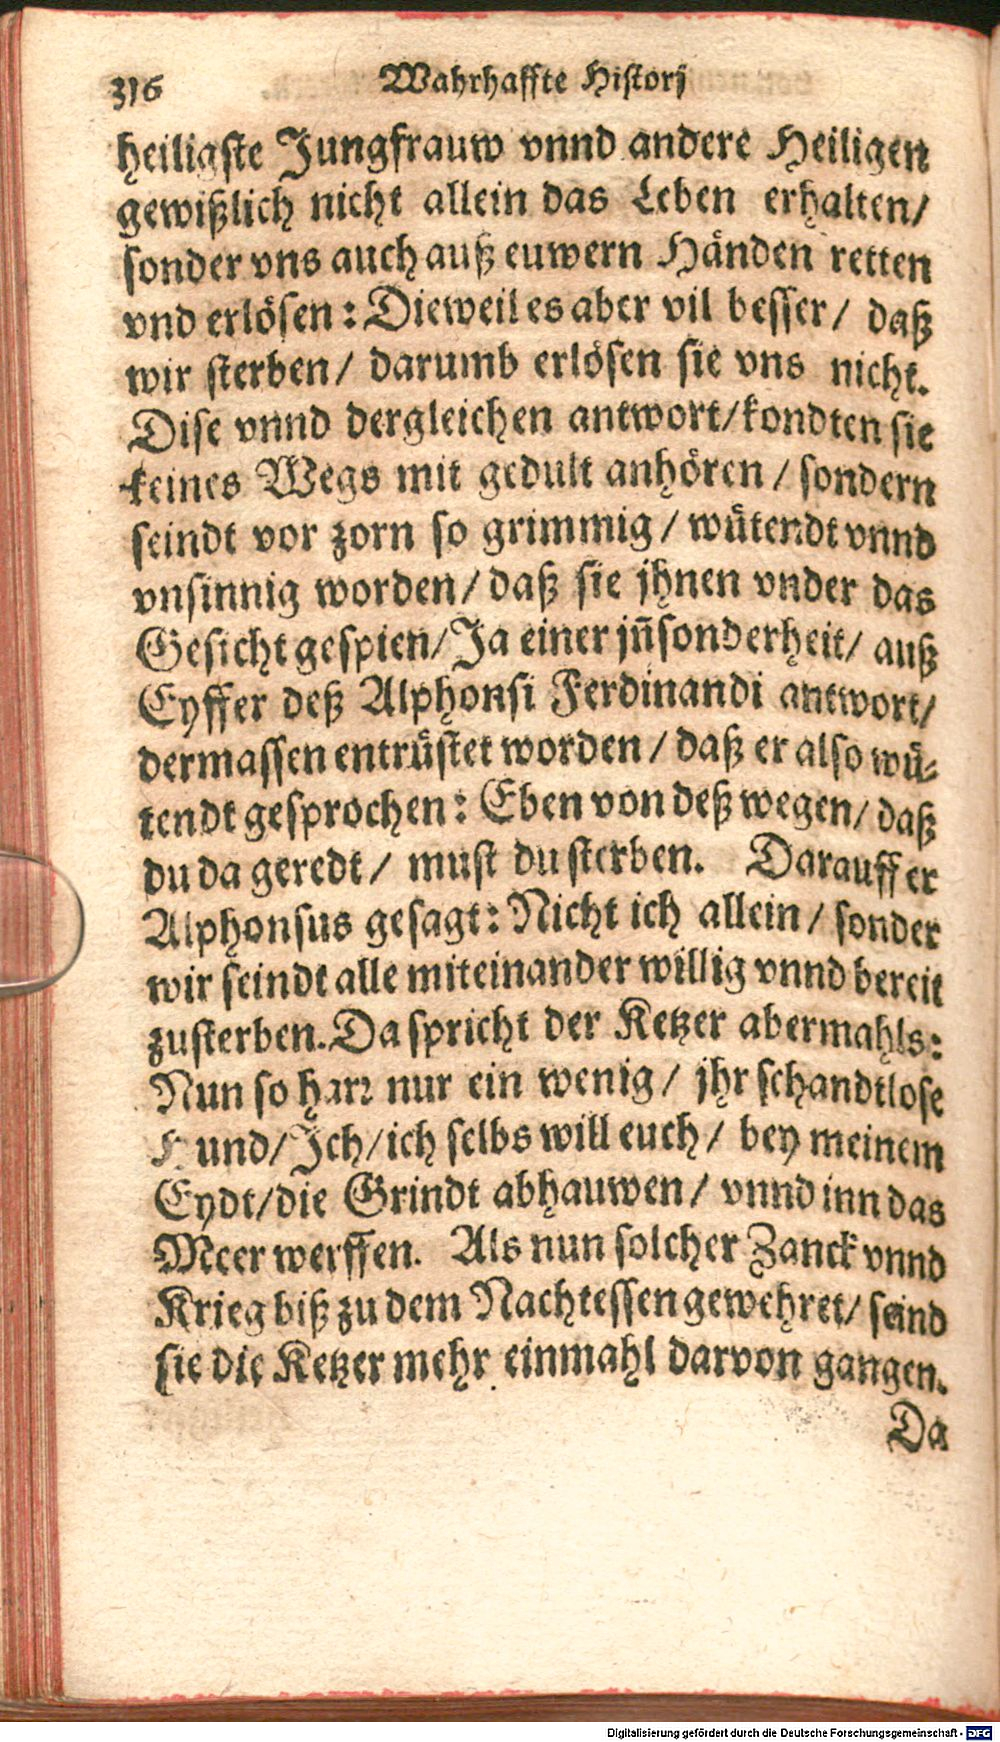 316 Wahrhaffte Historÿ
heiligste Jungfrauw vnnd andere Heiligen
gewißlich nicht allein das Leben erhalten/
sonder vns auch auß euwern Händen retten
vnd erlösen: Dieweil es aber vil besser/ daß
wir sterben/ darumb erlösen sie vns nicht.
Dise vnnd dergleichen antwort/kondten sie
keines Wegs mit gedult anhören/ sondern
seindt vor zorn so grimmig/ wütendt vnnd
vnsinnig worden/ daß sie jhnen vnder das
Gesicht gespien/Ja einer jñsonderheit/ auß
Eyffer deß Alphonsi Ferdinandi antwort/
dermassen entrüstet worden/ daß er also wü-
tendt gesprochen: Eben von deß wegen/ daß
du da geredt/ must du sterben. Darauff er
Alphonsus gesagt: Nicht ich allein/ sonder
wir seindt alle miteinander willig vnnd bereit
zusterben. Da spricht der Ketzer abermahls:
Nun so harr nur ein wenig/ jhr schandtlose
Hund/Ich/ich selbs will euch/ bey meinem
Eydt/die Grindt abhauwen/ vnnd inn das
Meer werffen. Als nun solcher Zanck vnnd
Krieg biß zu dem Nachtessen gewehret/ seind
sie die Ketzer mehr einmahl darvon gangen.
Da
Digitalisierung gefördert durch die Deutsche Forschungsgemeinschaft - DFG